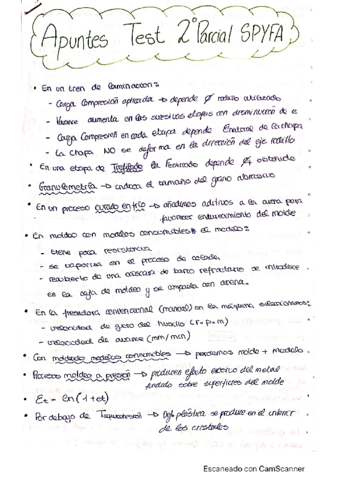 Apuntes Test 2º Parcial SPYFA
• En un tren de laminación:
- Carga Compresión aplicada → depende ø rodillo utilizado
- aumenta en las sucesivas etapas con disminución de e
- Carga Compresión en cada etapa depende de la chapa
- La chapa NO se deforma en la dirección del eje rodillo
• En una etapa de Trefilado la depende ø obtenido
• Granulometría → indica el tamaño del grano abrasivo
• En un proceso curado en frío → añadimos aditivos a la arena para
favorecer endurecimiento del molde
• En moldeo con modelos consumibles el modelo:
- tiene poca resistencia
- se vaporiza en el proceso de colada
- recubierto de una cáscara de barro refractario se introduce
en la caja de moldeo y se compacta con arena.
• En la fresadora convencional (manual) en la máquina seleccionamos:
- velocidad de giro del husillo (r.p.m)
- velocidad de avance (mm/min)
• Con moldeado modelos consumibles → perdemos molde + modelo
• Procesos moldeo a presión → producen efecto erosivo del metal
fundido sobre superficies del molde
• Et = ln(1+et)
• Por debajo de → plástica se produce en el interior
de los cristales
Escaneado con CamScanner